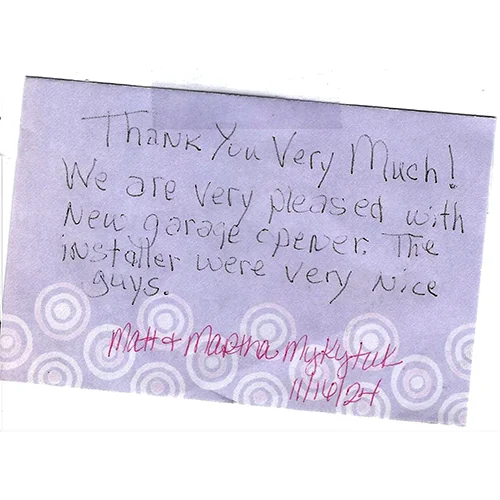 Thank You Very Much!
We are very pleased with
New garage opener. The
installer were very nice
guys.
Matt & Martha Mykytuk
11/16/24